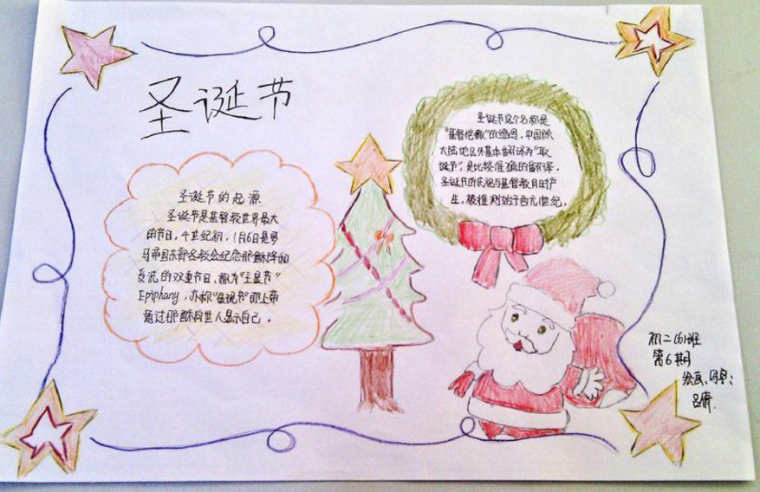 圣诞节
圣诞节的起源
圣诞节是基督教世界最大
的节日，4世纪初，1月6日是罗
马帝国东部各教会纪念耶稣降临和
受洗的双重节日，称为“主显节”
Epiphany，亦称“显现节”即上帝
通过耶稣向世人显示自己。
圣诞节这个名称是
“基督弥撒”的缩写，中国除
大陆地区外基本翻译为“耶
诞节”，是比较准确的翻译。
圣诞节的庆祝与基督教同时产
生，被推测始于西元1世纪。
初二(6)班
第6期